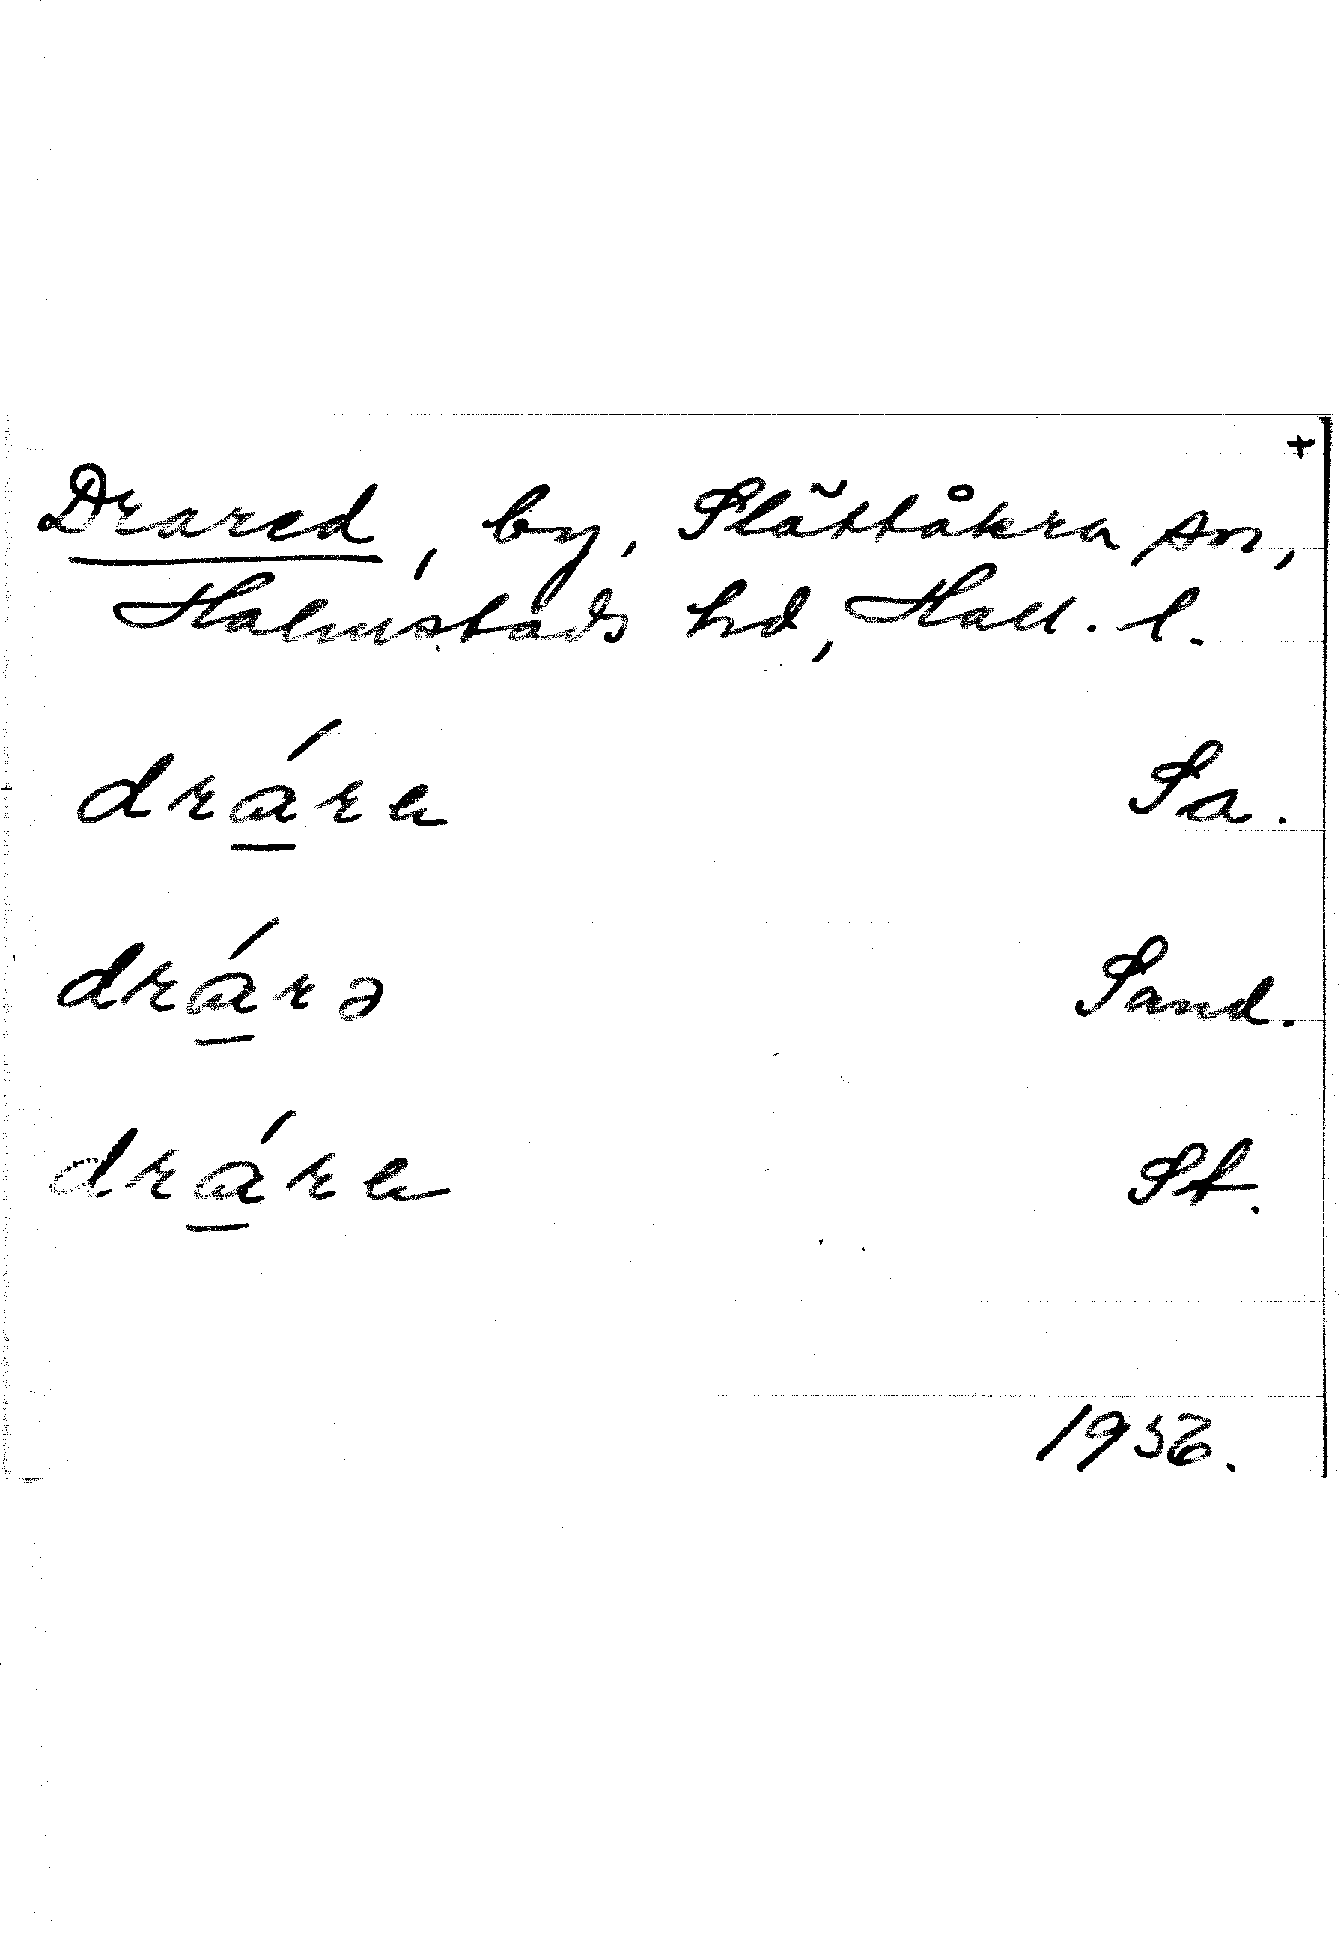 +
Drared, by, Slättåkra sn,
Halmstads hd, Hall. l.
drá̲re Sa.
drá̲rə Sand.
drá̲re St.
1956.